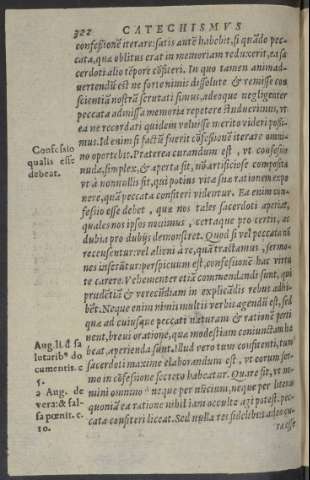 322 CATECHISMVS
confeſſionẽ iterare: ſatis autẽ habebit, ſi quãdo pec-
cata, quæ oblitus erat in memoriam reduxerit, ea ſa
cerdoti alio tẽpore cõfiteri. In quo tamen animad-
vertendũ eſt ne forte nimis diſſolute & remiſſe con
ſcientiã noſtrã ſcrutati ſimus, adeoque negligenter
peccata admiſſa memoria repetere ſtuduerimus, vt
ea ne recordari quidem voluiſſe merito videri poſſi-
mus. Id enim ſi factũ fuerit cõfeſſionẽ iterare omni-
no oportebit. Præterea curandum eſt, vt confeſſio
Confeſsio
qualis eſſe
debeat.
nuda, ſimplex, & aperta ſit, nõ artificioſe compoſita
vt à nonnullis ſit, qui potius vitæ ſuæ rationem expo
nere, quã peccata confiteri videntur. Ea enim con-
feſſio eſſe debet, quæ nos tales ſacerdoti aperiat,
quales nos ipſos nouimus, certaque pro certis, ac
dubia pro dubijs demonſtret. Quod ſi vel peccata nõ
recenſentur: vel alieni à re, quã tractamus, ſermo-
nes inſerũtur: perſpicuum eſt, confeſſionẽ hac virtu
te carere. Vehementer etiã commendandi ſunt, qui
prudẽtiã & verecũdiam in explicãdis rebus adhi-
bẽt. Neque enim nimis multis verbis agendũ eſt, ſed
quæ ad cuiuſque peccati naturam & rationẽ perti
nent, breui oratione, quæ modeſtiam coniunctam ha
beat, aperienda ſunt. Illud vero tum confitenti, tum
Aug. li. d ſa
lutaribꝰ do
cumentis. c
5.
ſacerdoti maxime elaborandum eſt, vt eorum ſer-
mo in cõfeſſione ſecreto habeatur. Quare fit, vt ne-
mini omnino neque per nũcium, neque per literas
2 Aug. de
vera & fal-
ſa pœnit. c.
10.
quoniã ea ratione nihil iam occulte agi poteſt, pec-
cata confiteri liceat. Sed nulla res fidelibus adeo cu-
ræ eſſe